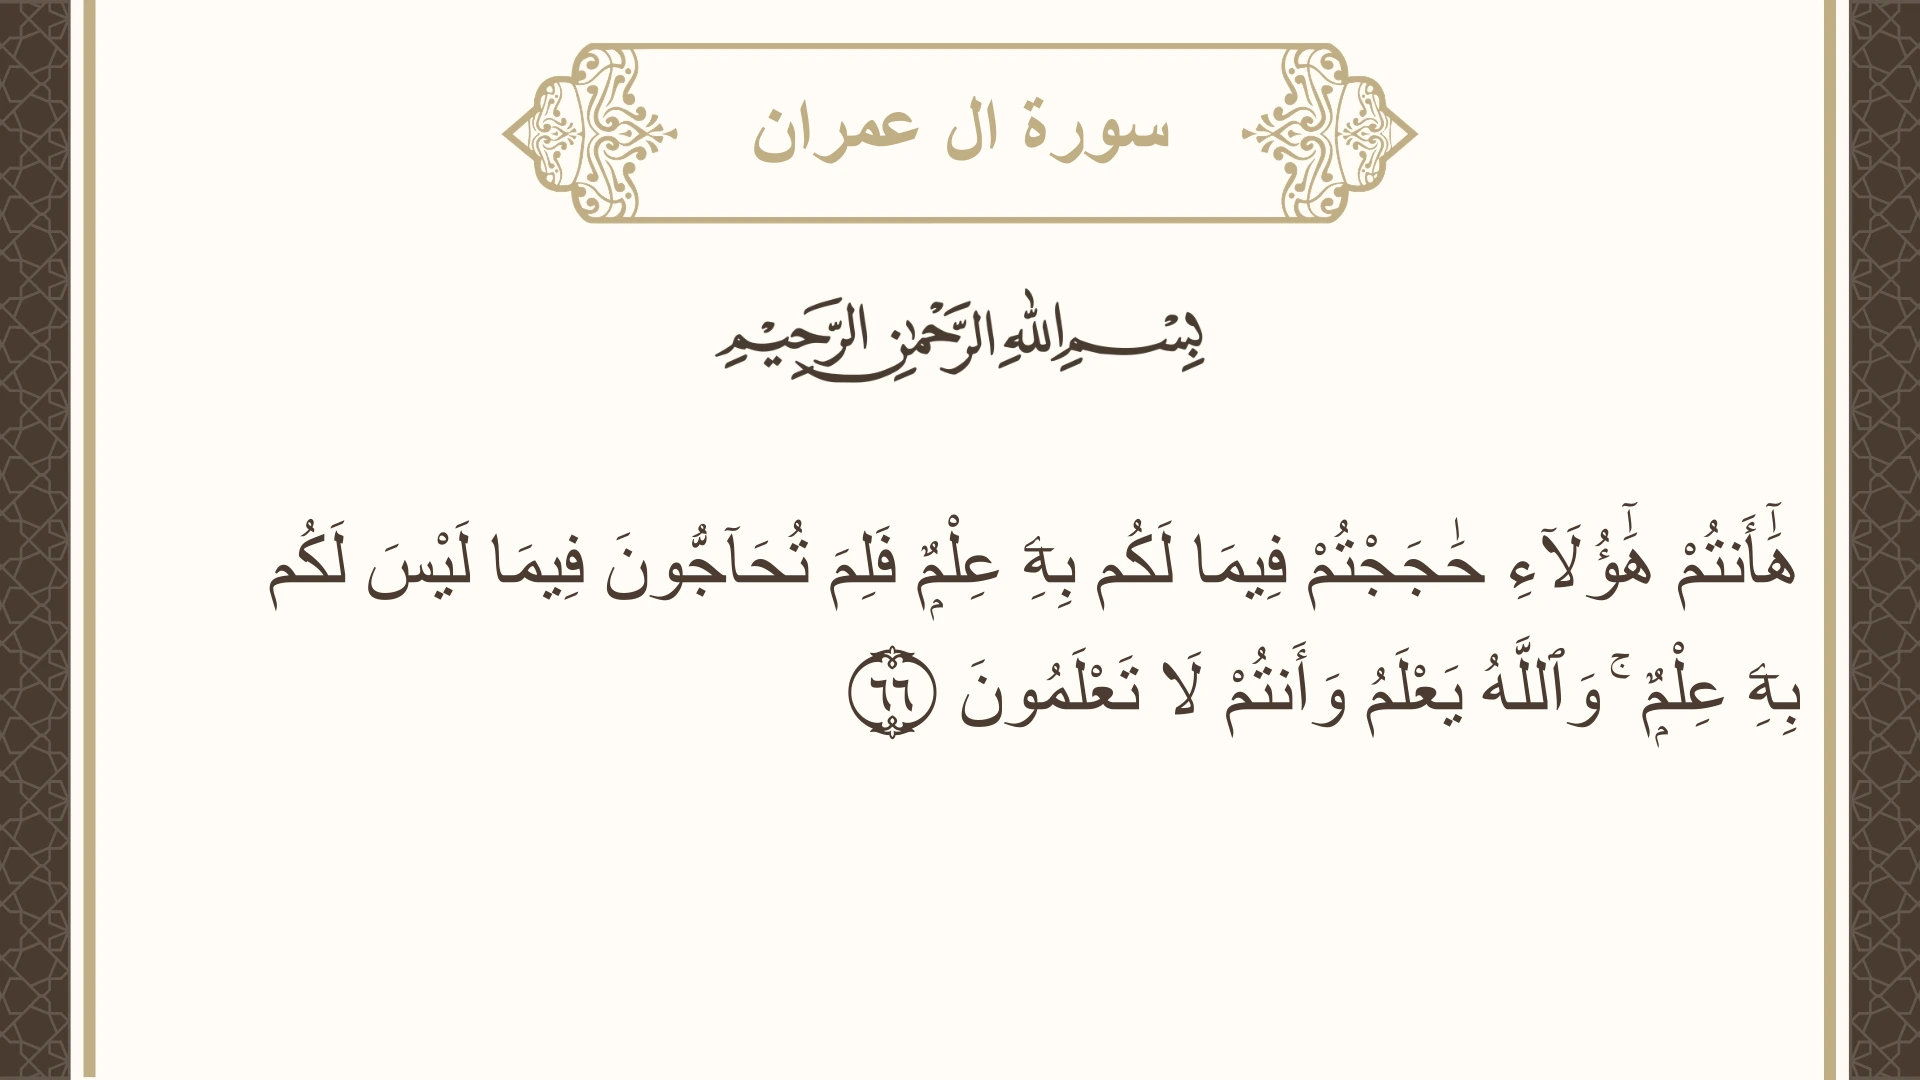 سورة ال عمران
بِسْمِ اللَّهِ الرَّحْمَٰنِ الرَّحِيمِ
هَٰٓأَنتُمْ هَٰٓؤُلَآءِ حَٰجَجْتُمْ فِيمَا لَكُم بِهِۦ عِلْمٌۭ فَلِمَ تُحَآجُّونَ فِيمَا لَيْسَ لَكُم
بِهِۦ عِلْمٌۭ ۚ وَٱللَّهُ يَعْلَمُ وَأَنتُمْ لَا تَعْلَمُونَ ٦٦